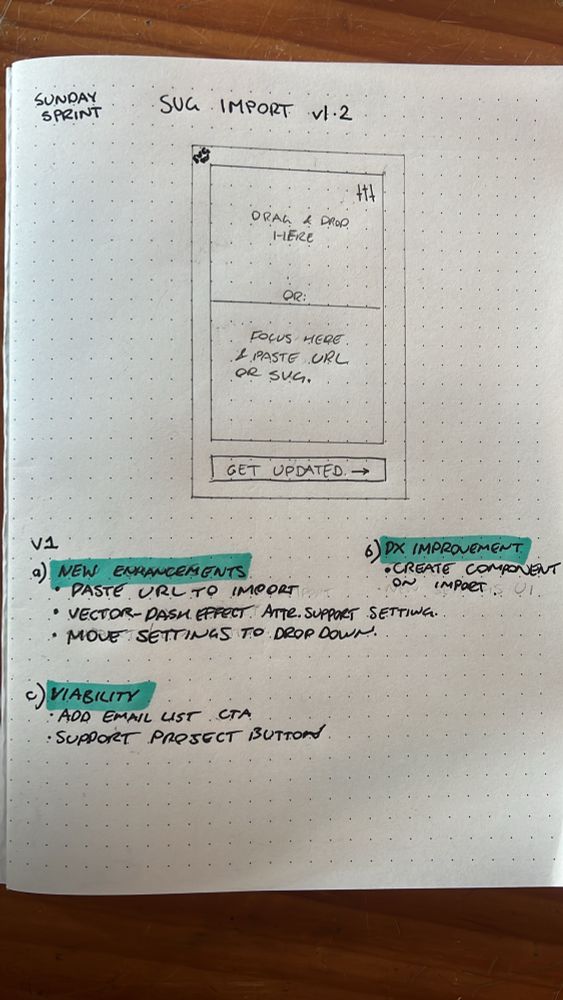 SUNDAY
SPRINT
SVG IMPORT v1.2
DRAG & DROP
HERE
OR:
FOCUS HERE
& PASTE URL
OR SVG.
GET UPDATED. →
V1
a) NEW ENHANCEMENTS
• PASTE URL TO IMPORT
• VECTOR-DASH EFFECT ATTR. SUPPORT SETTING.
• MOVE SETTINGS TO DROP DOWN.
b) DX IMPROVEMENT
• CREATE COMPONENT
ON IMPORT
c) VIABILITY
• ADD EMAIL LIST CTA
• SUPPORT PROJECT BUTTON